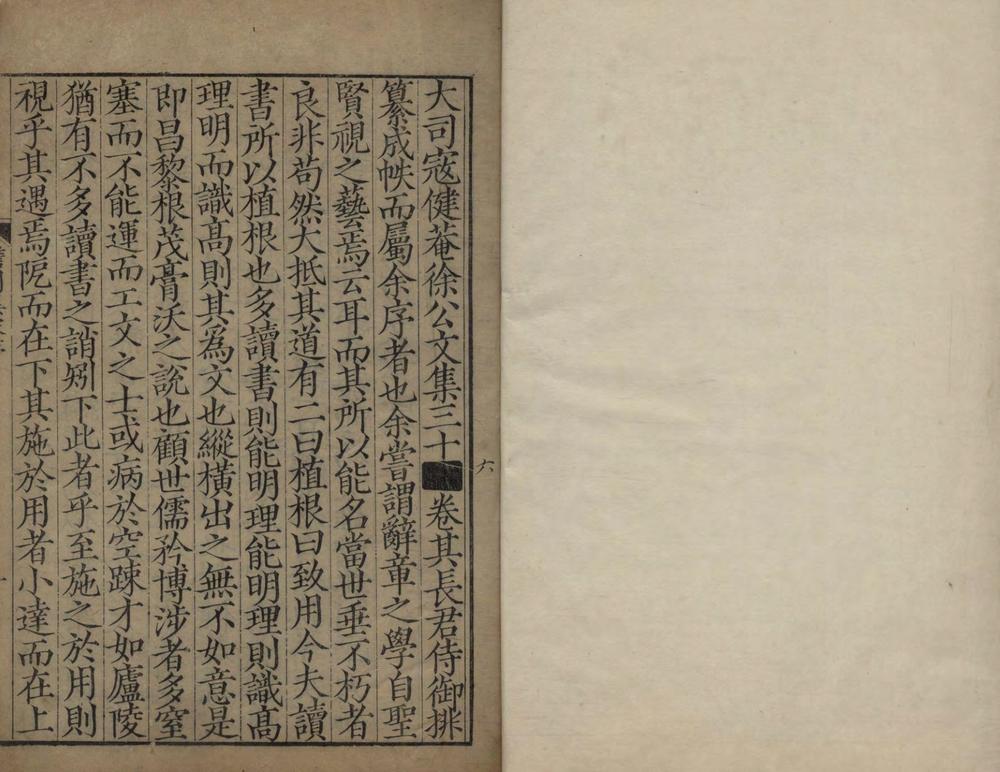 大司寇健菴徐公文集三十卷其長君侍御排
六
纂成帙而屬余序者也余嘗謂辭章之學自聖
賢視之藝焉云耳而其所以能名當世垂不朽者
良非苟然大抵其道有二曰植根曰致用今夫讀
書所以植根也多讀書則能明理能明理則識高
理明而識高則其為文也縱橫出之無不如意是
即昌黎根茂膏沃之說也顧世儒矜博涉者多窒
塞而不能運而工文之士或病於空踈才如廬陵
猶有不多讀書之誚矧下此者乎至施之於用則
視乎其遇焉阨而在下其施於用者小達而在上